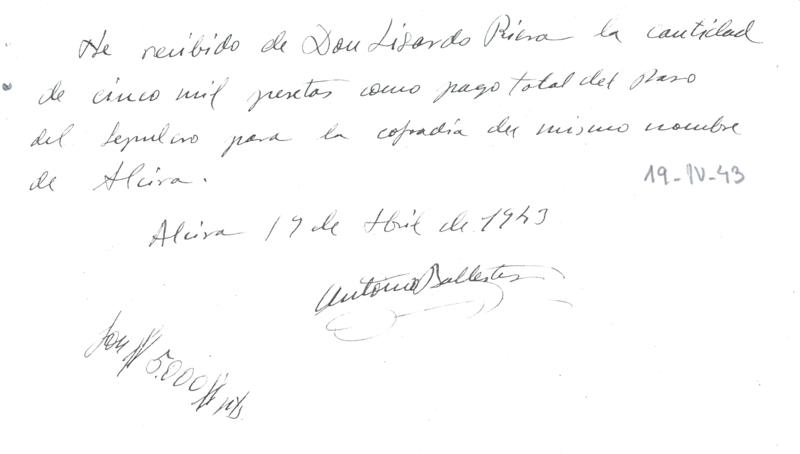 He recibido de Don Lisardo Piera la cantidad
de cinco mil pesetas como pago total del paso
del Sepulcro para la cofradía del mismo nombre
de Alcira.
19-IV-43
Alcira 19 de Abril de 1943
Antonio Ballester
Son # 5.000 # pts.